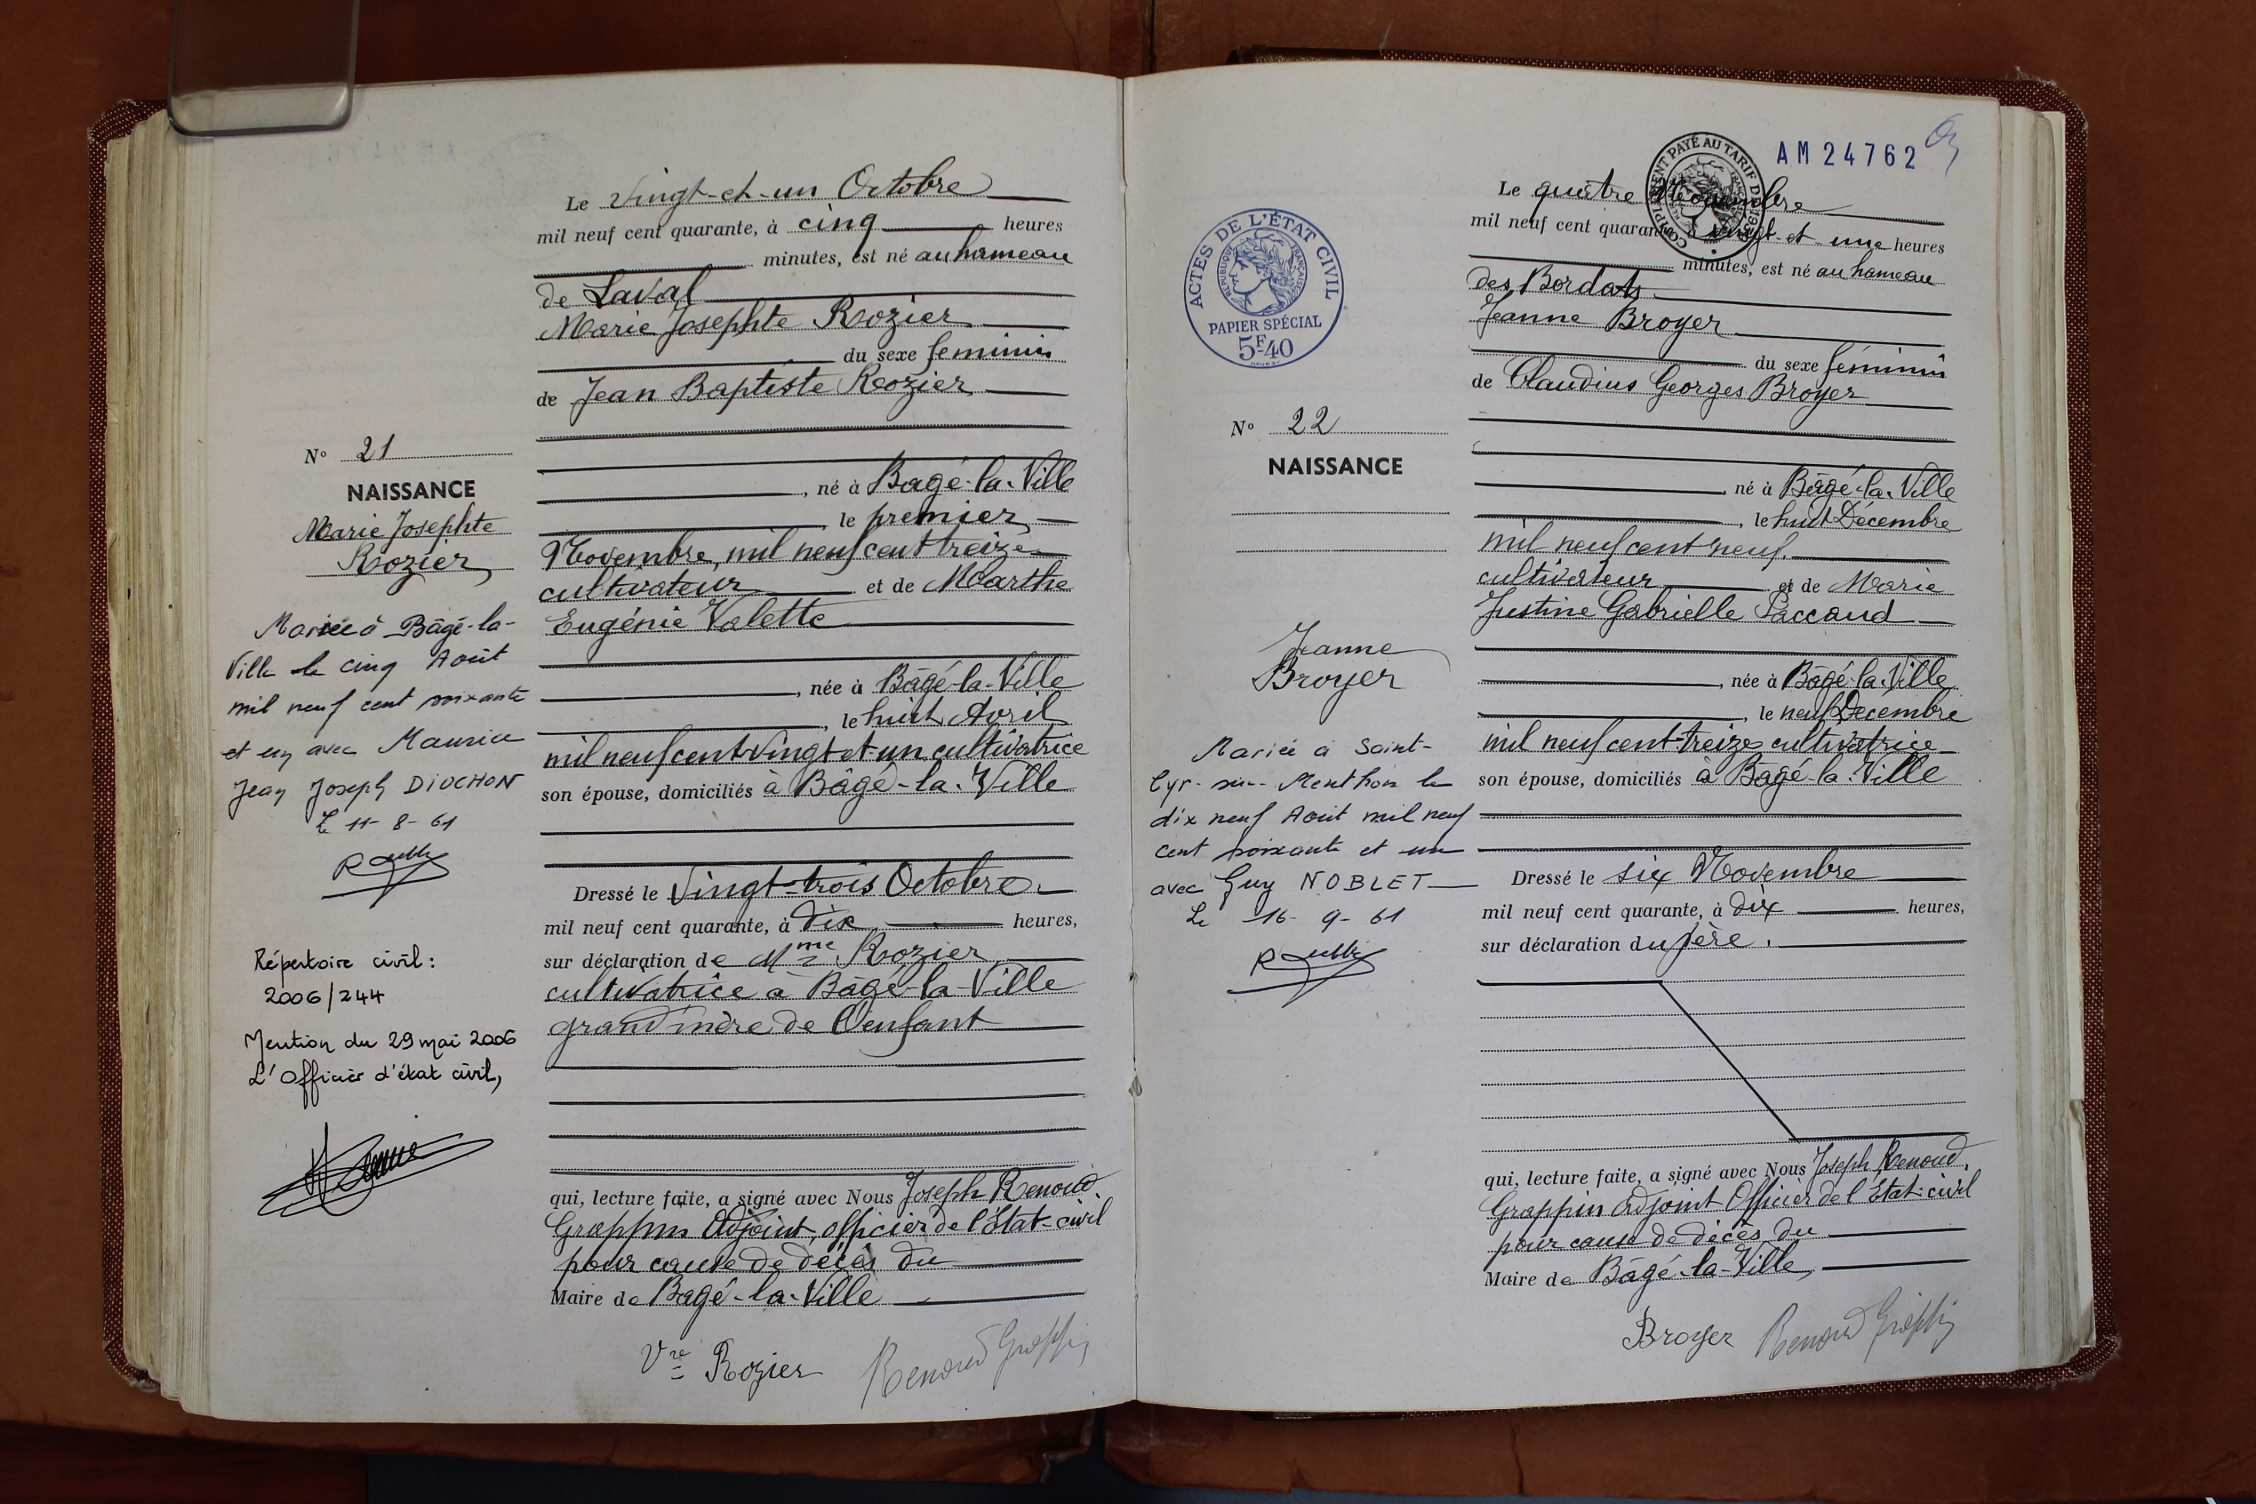 Le Vingt-et-un Octobre
mil neuf cent quarante, à cinq heures
minutes, est né au hameau
de Laval
Marie Josephte Rozier
du sexe feminin
de Jean Baptiste Rozier
, né à Bagé-la-Ville
, le premier
Novembre, mil neuf cent treize
cultivateur et de Marthe
Eugénie Valette
, née à Bâgé-la-Ville
, le huit Avril
mil neuf cent vingt-et-un cultivatrice
son épouse, domiciliés à Bâgé-la-Ville
Dressé le Vingt-trois Octobre
mil neuf cent quarante, à dix heures,
sur déclaration de Mme Rozier
cultivatrice à Bâgé-la-Ville
grand'mère de l'enfant
qui, lecture faite, a signé avec Nous Joseph Renoud
Grappin Adjoint, officier de l'Etat-civil
pour cause de décès du
Maire de Bagé-la-Ville
Vve Rozier Renoud Grappin
N° 21
NAISSANCE
Marie Josephte
Rozier
Mariée à Bâgé-la-
Ville le cinq Août
mil neuf cent soixante
et un avec Maurice
Jean Joseph DIOCHON
Le 11-8-61
Répertoire civil :
2006/244
Mention du 29 mai 2006
L'Officier d'état civil,
AM 24762
COMPLEMENT PAYÉ AU TARIF DE
Le quatre Novembre
mil neuf cent quarante, à vingt-et-une heures
minutes, est né au hameau
des Bordats
Jeanne Broyer
du sexe féminin
de Claudius Georges Broyer
né à Bâgé-la-Ville
, le huit Décembre
mil neuf cent neuf.
cultivateur et de Marie
Justine Gabrielle Paccaud
, née à Bâgé-la-Ville
, le neuf Decembre
mil neuf cent treize cultivatrice
son épouse, domiciliés à Bâgé-la-Ville
Dressé le six Novembre
mil neuf cent quarante, à dix heures,
sur déclaration du père.
qui, lecture faite, a signé avec Nous Joseph Renoud,
Grappin Adjoint Officier de l'Etat-civil
pour cause de décès du
Maire de Bâgé-la-Ville,
Broyer Renoud Grappin
ACTES DE L'ÉTAT CIVIL
RÉPUBLIQUE FRANÇAISE
PAPIER SPÉCIAL
5F40
N° 22
NAISSANCE
Jeanne
Broyer
Mariée à Saint-
Cyr-sur-Menthon le
dix neuf Août mil neuf
cent soixante et un
avec Guy NOBLET
Le 16-9-61